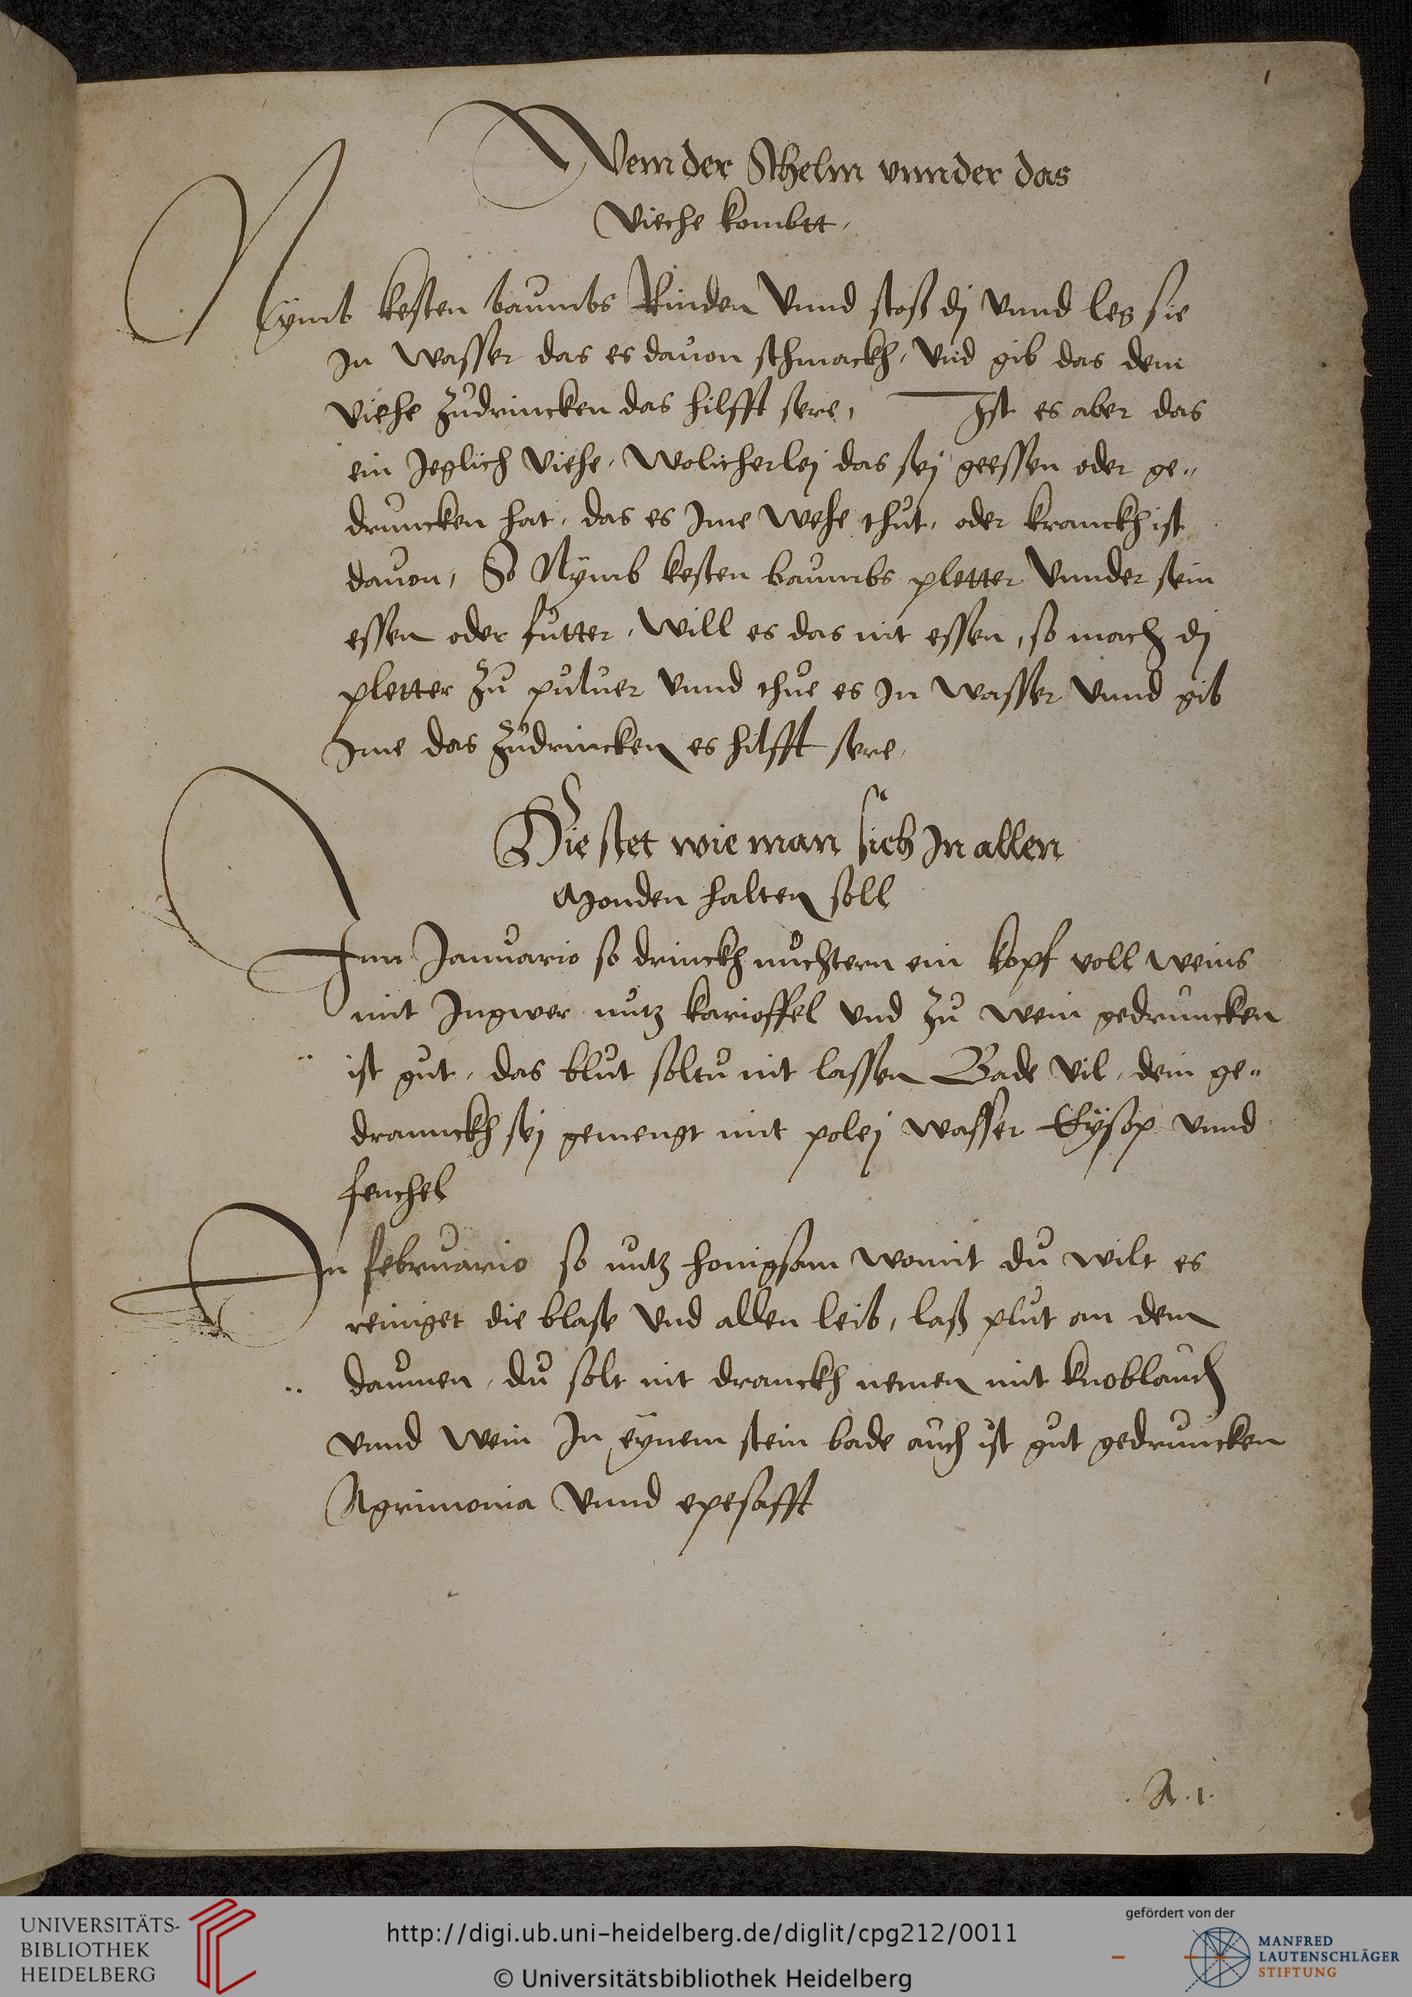 1
Wenn der Schelm vnnder das
Vieche kombtt,
Nÿmb kesten baumbs Rinden Vnnd stoß dj Vnnd leg sie
In Wasser das es dauon schmackh, Vnd gib das dem
Viehe zudrincken das hilfft sere, Ist es aber das
ein Jeglich Viehe, Welicherlej das sej geessen oder ge„
druncken hat, das es Ime Wehe thut, oder kranckh ist
dauon, So Nÿmb kesten baumbs pletter Vnnder sein
essen oder futter, Will es das nit essen, so mach dj
pletter zu puluer Vnnd thue es In Wasser Vnnd gib
Ime das zudrincken es hilfft sere,
Hie stet wie man sich In allen
Monden halten soll
Imm Januario so drinckh nuchtern ein kopf voll weins
mit Ingwer nutz karioffel Vnd zu Wein gedruncken
ist gut, das blut soltu nit lassen Bade vil, dein ge„
dranckh sej gemengt mit polej wasser Eÿsop Vnnd
fenchel
In februario so nutz honigsam womit du wilt es
reiniget die blase Vnd allen leib, laß plut an dem
daumen, du solt nit dranckh nemen mit knoblauch
Vnnd Wein In eÿnem stein bade auch ist gut gedruncken
Agrimonia Vnnd epesafft
. A . 1 .
UNIVERSITÄTS-
BIBLIOTHEK
HEIDELBERG
http://digi.ub.uni-heidelberg.de/diglit/cpg212/0011
© Universitätsbibliothek Heidelberg
gefördert von der
MANFRED
LAUTENSCHLÄGER
STIFTUNG